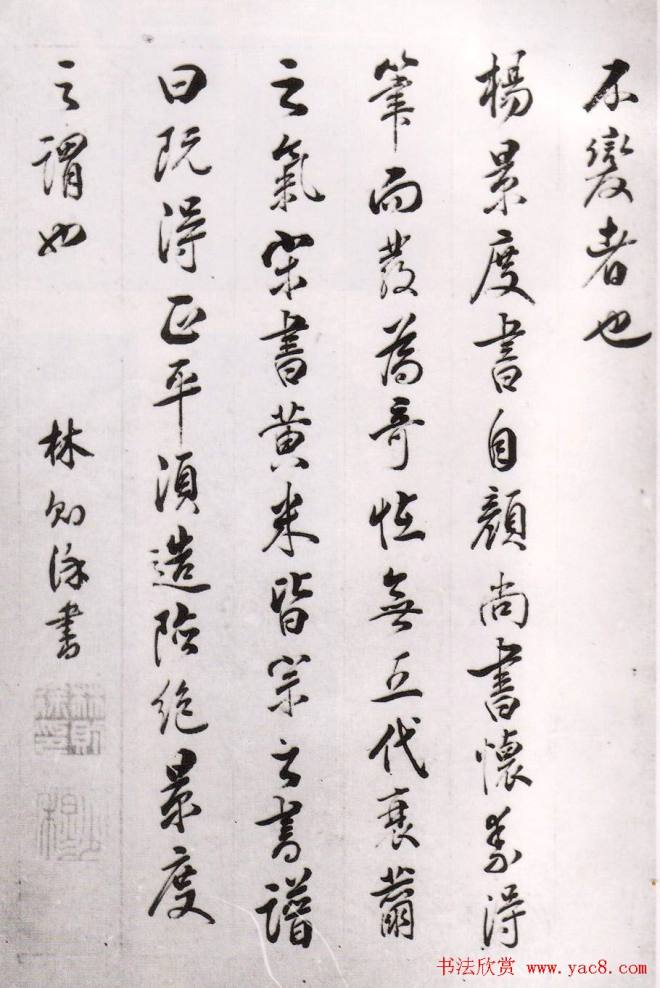 不變者也
楊景度書自顏尚書懷素得
筆而發為奇恠無五代衰薾
之氣宋書黄米皆宗之書譜
曰既得正平須造險絶景度
之謂也
林則徐書
书法欣赏 www.yac8.com